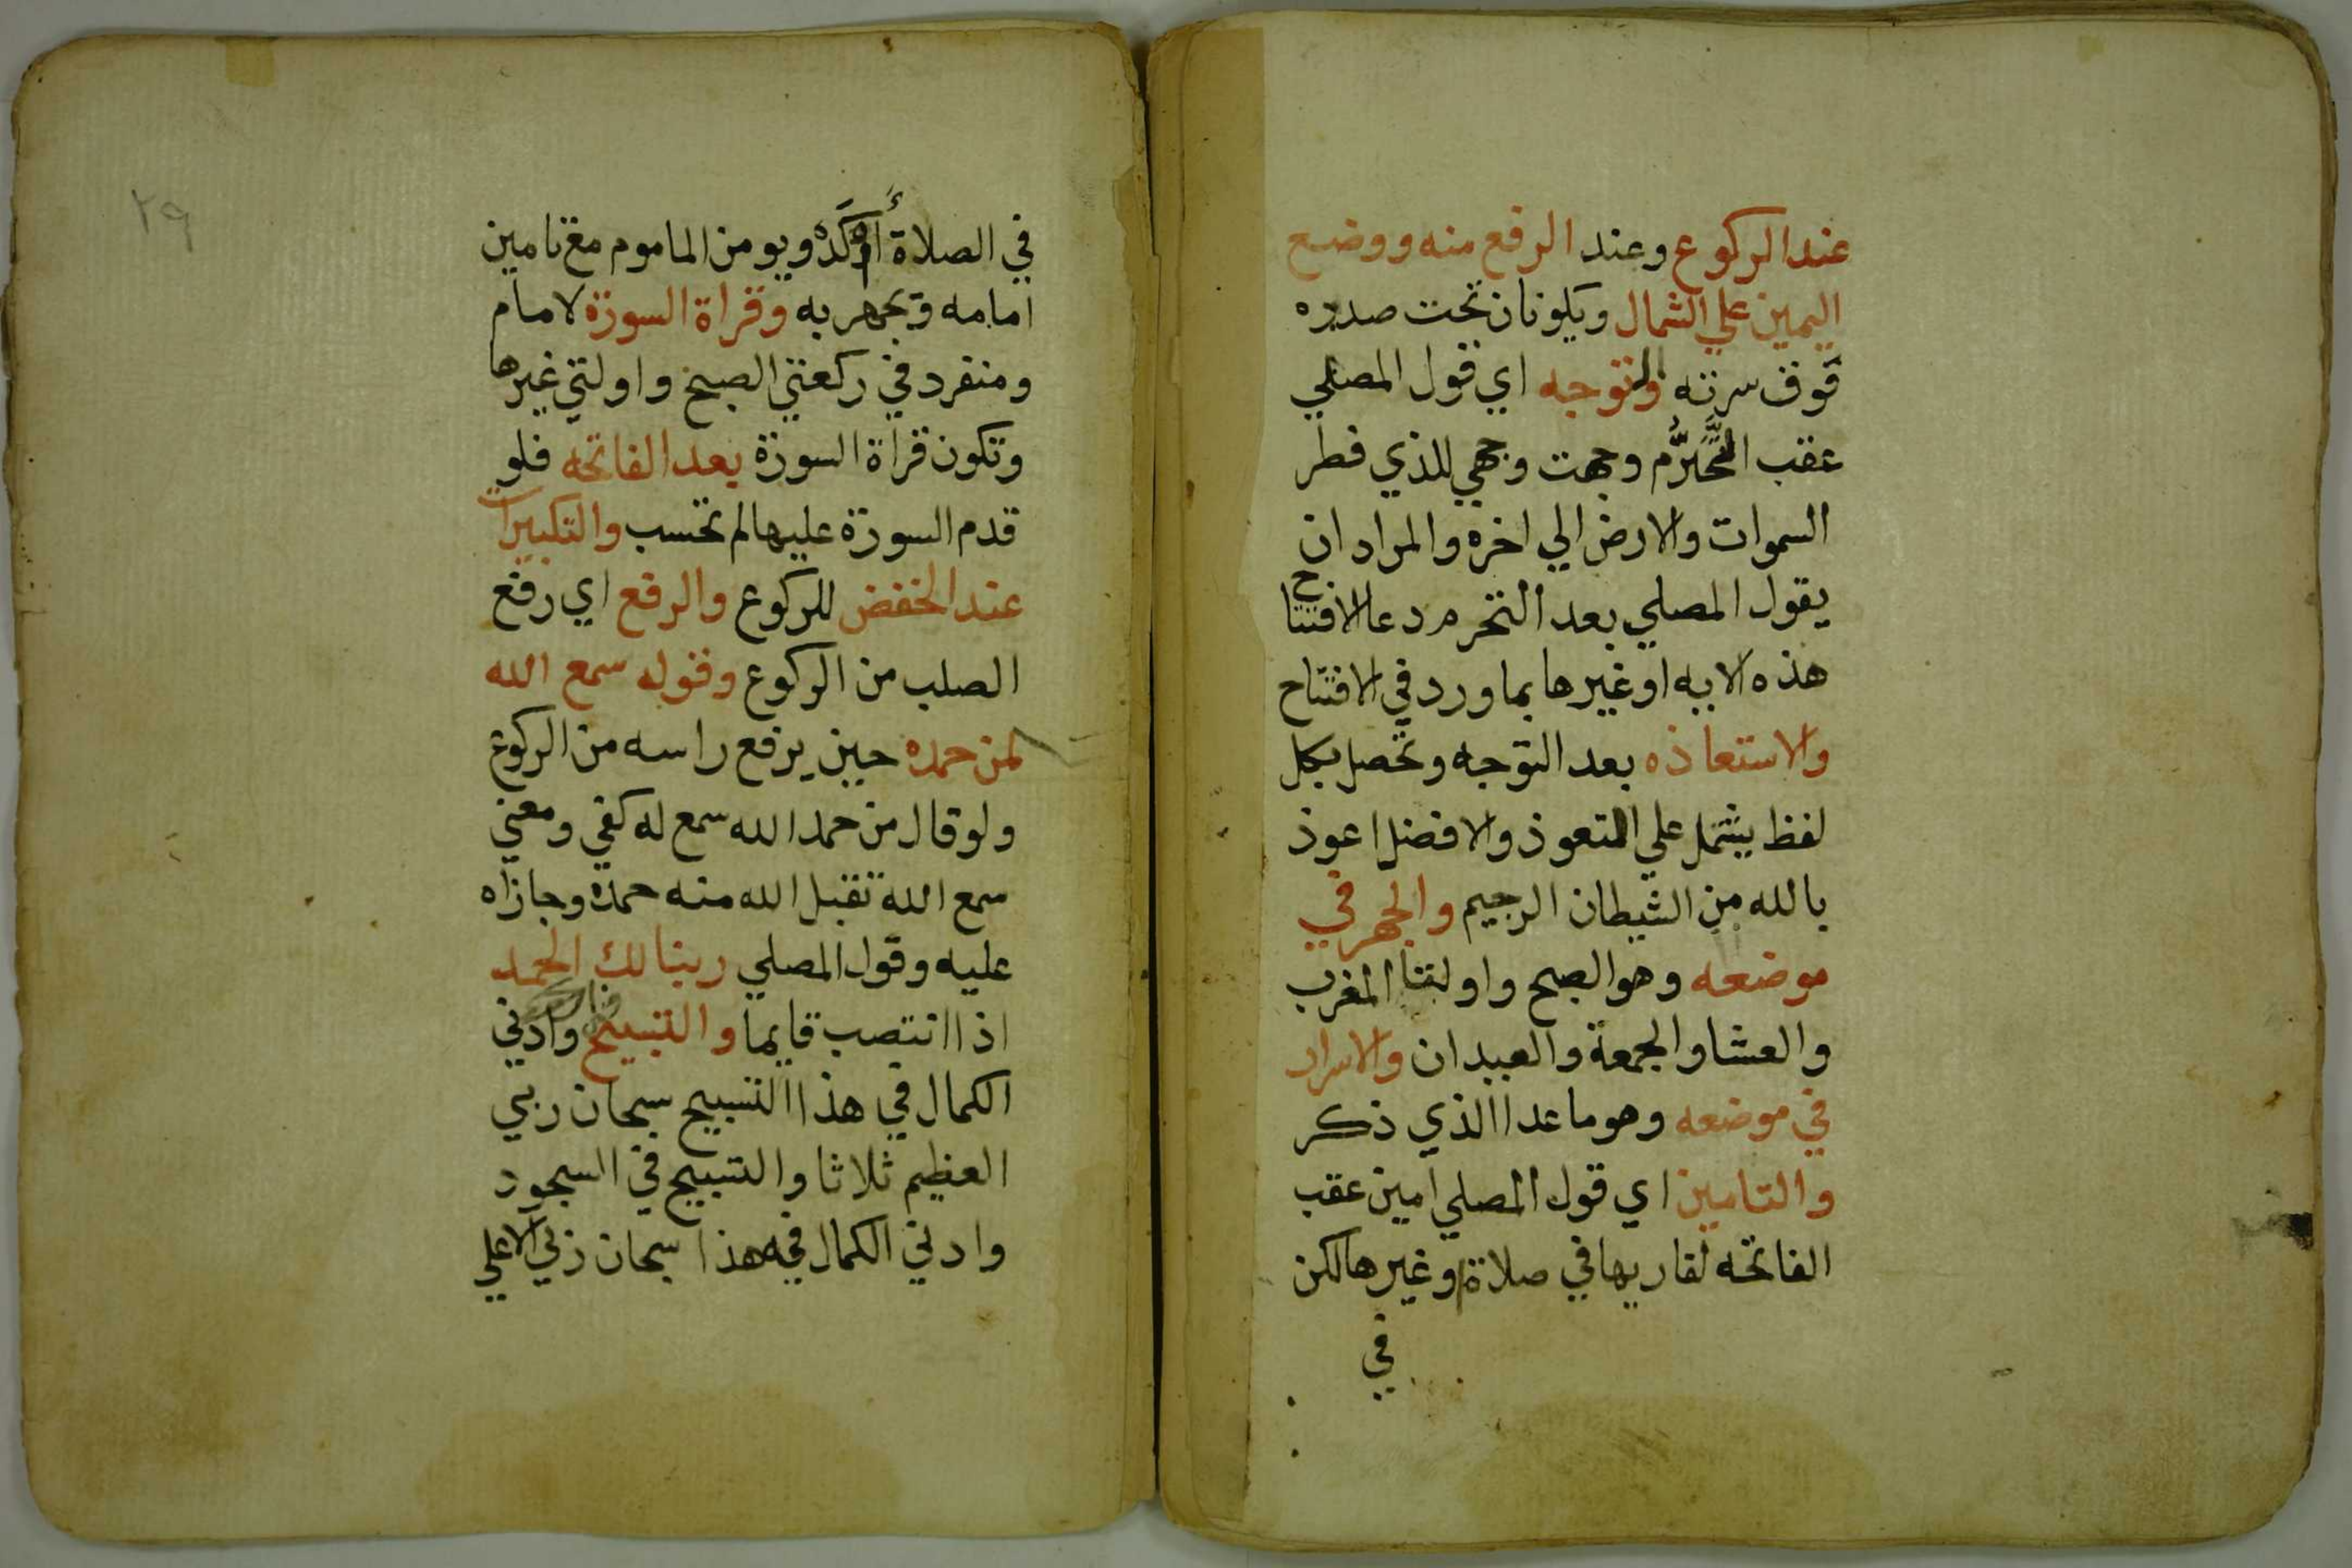 عند الركوع وعند الرفع منه ووضع
اليمين علي الشمال ويكونان تحت صدره
فوق سرته والتوجه اي قول المصلي
عقب التحرم وجهت وجهي للذي فطر
السموات والارض الي اخره والمراد ان
يقول المصلي بعد التحرم دعا الافتتاح
هذه الايه او غيرها بما ورد في الافتتاح
والاستعاذه بعد التوجه وتحصل بكل
لفظ يشتمل علي التعوذ والافضل اعوذ
بالله من الشيطان الرجيم والجهر في
موضعه وهو الصبح واولتا المغرب
والعشا والجمعة والعيدان والاسرار
في موضعه وهو ما عدا الذي ذكر
والتامين اي قول المصلي امين عقب
الفاتحه لقاريها في صلاة او غيرها لكن
في
٢٩
في الصلاة أوكده ويومن الماموم مع تامين
امامه ويجهر به وقراة السورة لامام
ومنفرد في ركعتي الصبح واولتي غيرها
وتكون قراة السورة بعد الفاتحه فلو
قدم السورة عليها لم تحسب والتكبيرات
عند الخفض للركوع والرفع اي رفع
الصلب من الركوع وقوله سمع الله
لمن حمده حين يرفع راسه من الركوع
ولو قال من حمد الله سمع له كفي ومعني
سمع الله تقبل الله منه حمده وجازاه
عليه وقول المصلي ربنا لك الحمد
اذا انتصب قايما والتسبيح وادني
الكمال في هذا التسبيح سبحان ربي
العظيم ثلاثا والتسبيح في السجود
وادني الكمال فيه هذا سبحان ربي الاعلي